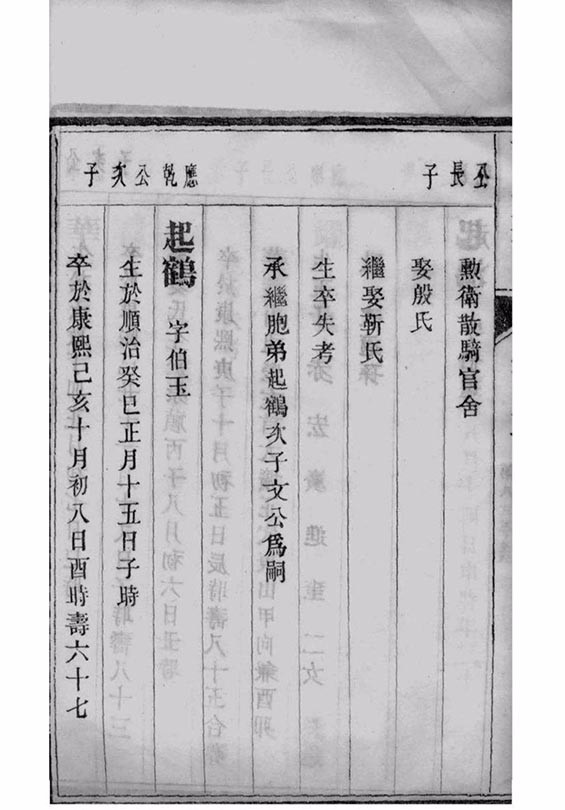 公長子
勲衛散騎官舍
娶殷氏
繼娶靳氏
生卒失考
承繼胞弟起鶴次子文公爲嗣
應乾公次子
起鶴 字伯玉
生於順治癸巳正月十五日子時
卒於康熙己亥十月初八日酉時壽六十七